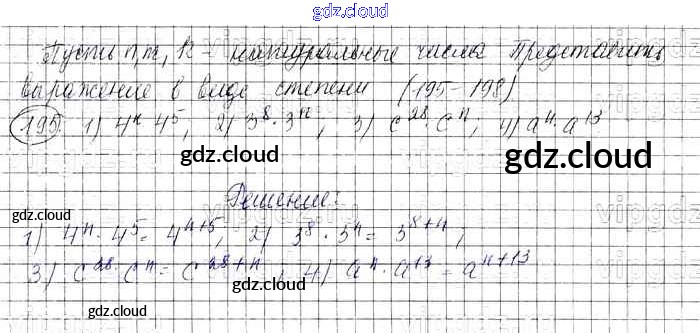 gdz.cloud
Пусть n, m, k - натуральные числа Представить
выражение в виде степени (195-198)
195. 1) 4ⁿ 4⁵, 2) 3⁸ · 3ⁿ; 3) c²⁸ · cⁿ; 4) aⁿ · a¹³
gdz.cloud gdz.cloud
Решение:
gdz.cloud
1) 4ⁿ · 4⁵ = 4ⁿ⁺⁵, 2) 3⁸ · 3ⁿ = 3⁸⁺ⁿ;
3) c²⁸ · cⁿ = c²⁸⁺ⁿ, 4) aⁿ · a¹³ = aⁿ⁺¹³
gdz.cloud
gdz.cloud